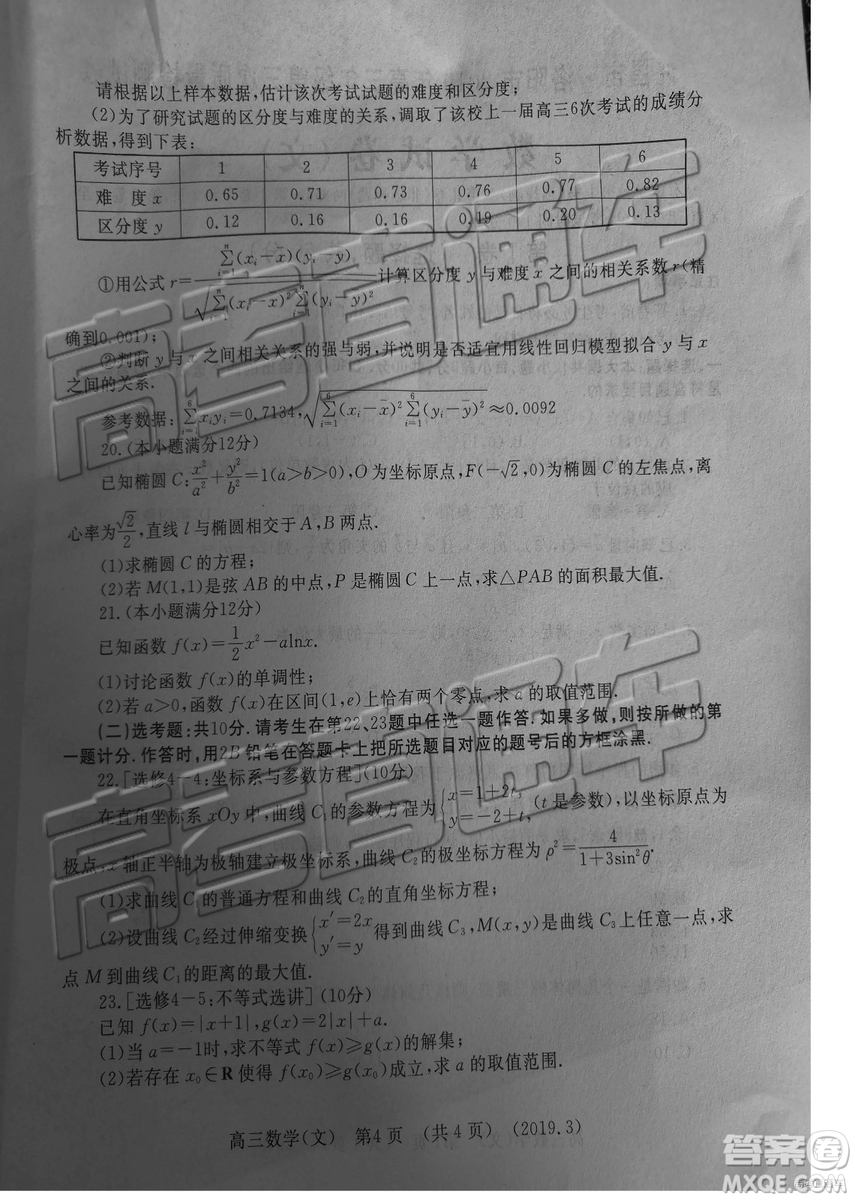 请根据以上样本数据,估计该次考试试题的难度和区分度;
(2)为了研究试题的区分度与难度的关系,调取了该校上一届高三6次考试的成绩分
析数据,得到下表:
考试序号 1 2 3 4 5 6
难 度x 0.65 0.71 0.73 0.76 0.77 0.82
区分度y 0.12 0.16 0.16 0.19 0.20 0.13
①用公式r=\frac{\sum_{i=1}^{n}(x_i-\bar{x})(y_i-\bar{y})}{\sqrt{\sum_{i=1}^{n}(x_i-\bar{x})^2\sum_{i=1}^{n}(y_i-\bar{y})^2}}计算区分度y与难度x之间的相关系数r(精
确到0.001);
②判断y与x之间相关关系的强与弱,并说明是否适宜用线性回归模型拟合y与x
之间的关系.
参考数据:\sum_{i=1}^{6}x_iy_i=0.7134,\sqrt{\sum_{i=1}^{6}(x_i-\bar{x})^2\sum_{i=1}^{6}(y_i-\bar{y})^2}≈0.0092
20.(本小题满分12分)
已知椭圆C:\frac{x^2}{a^2}+\frac{y^2}{b^2}=1(a>b>0),O为坐标原点,F(-√2,0)为椭圆C的左焦点,离
心率为\frac{√2}{2},直线l与椭圆相交于A,B两点.
(1)求椭圆C的方程;
(2)若M(1,1)是弦AB的中点,P是椭圆C上一点,求△PAB的面积最大值.
21.(本小题满分12分)
已知函数f(x)=\frac{1}{2}x²-alnx.
(1)讨论函数f(x)的单调性;
(2)若a>0,函数f(x)在区间(1,e)上恰有两个零点,求a的取值范围.
(二)选考题:共10分.请考生在第22、23题中任选一题作答.如果多做,则按所做的第
一题计分.作答时,用2B铅笔在答题卡上把所选题目对应的题号后的方框涂黑.
22.[选修4-4:坐标系与参数方程](10分)
在直角坐标系xOy中,曲线C₁的参数方程为{x=1+2t, y=-2+t, (t是参数),以坐标原点为
极点,x轴正半轴为极轴建立极坐标系,曲线C₂的极坐标方程为ρ²=\frac{4}{1+3sin²θ}.
(1)求曲线C₁的普通方程和曲线C₂的直角坐标方程;
(2)设曲线C₂经过伸缩变换{x′=2x y′=y得到曲线C₃,M(x,y)是曲线C₃上任意一点,求
点M到曲线C₁的距离的最大值.
23.[选修4-5:不等式选讲](10分)
已知f(x)=|x+1|,g(x)=2|x|+a.
(1)当a=-1时,求不等式f(x)≥g(x)的解集;
(2)若存在x₀∈R使得f(x₀)≥g(x₀)成立,求a的取值范围.
高三数学(文) 第4页 (共4页) (2019.3)
高考直通车
高考直通车
答案圈
MXQE.COM